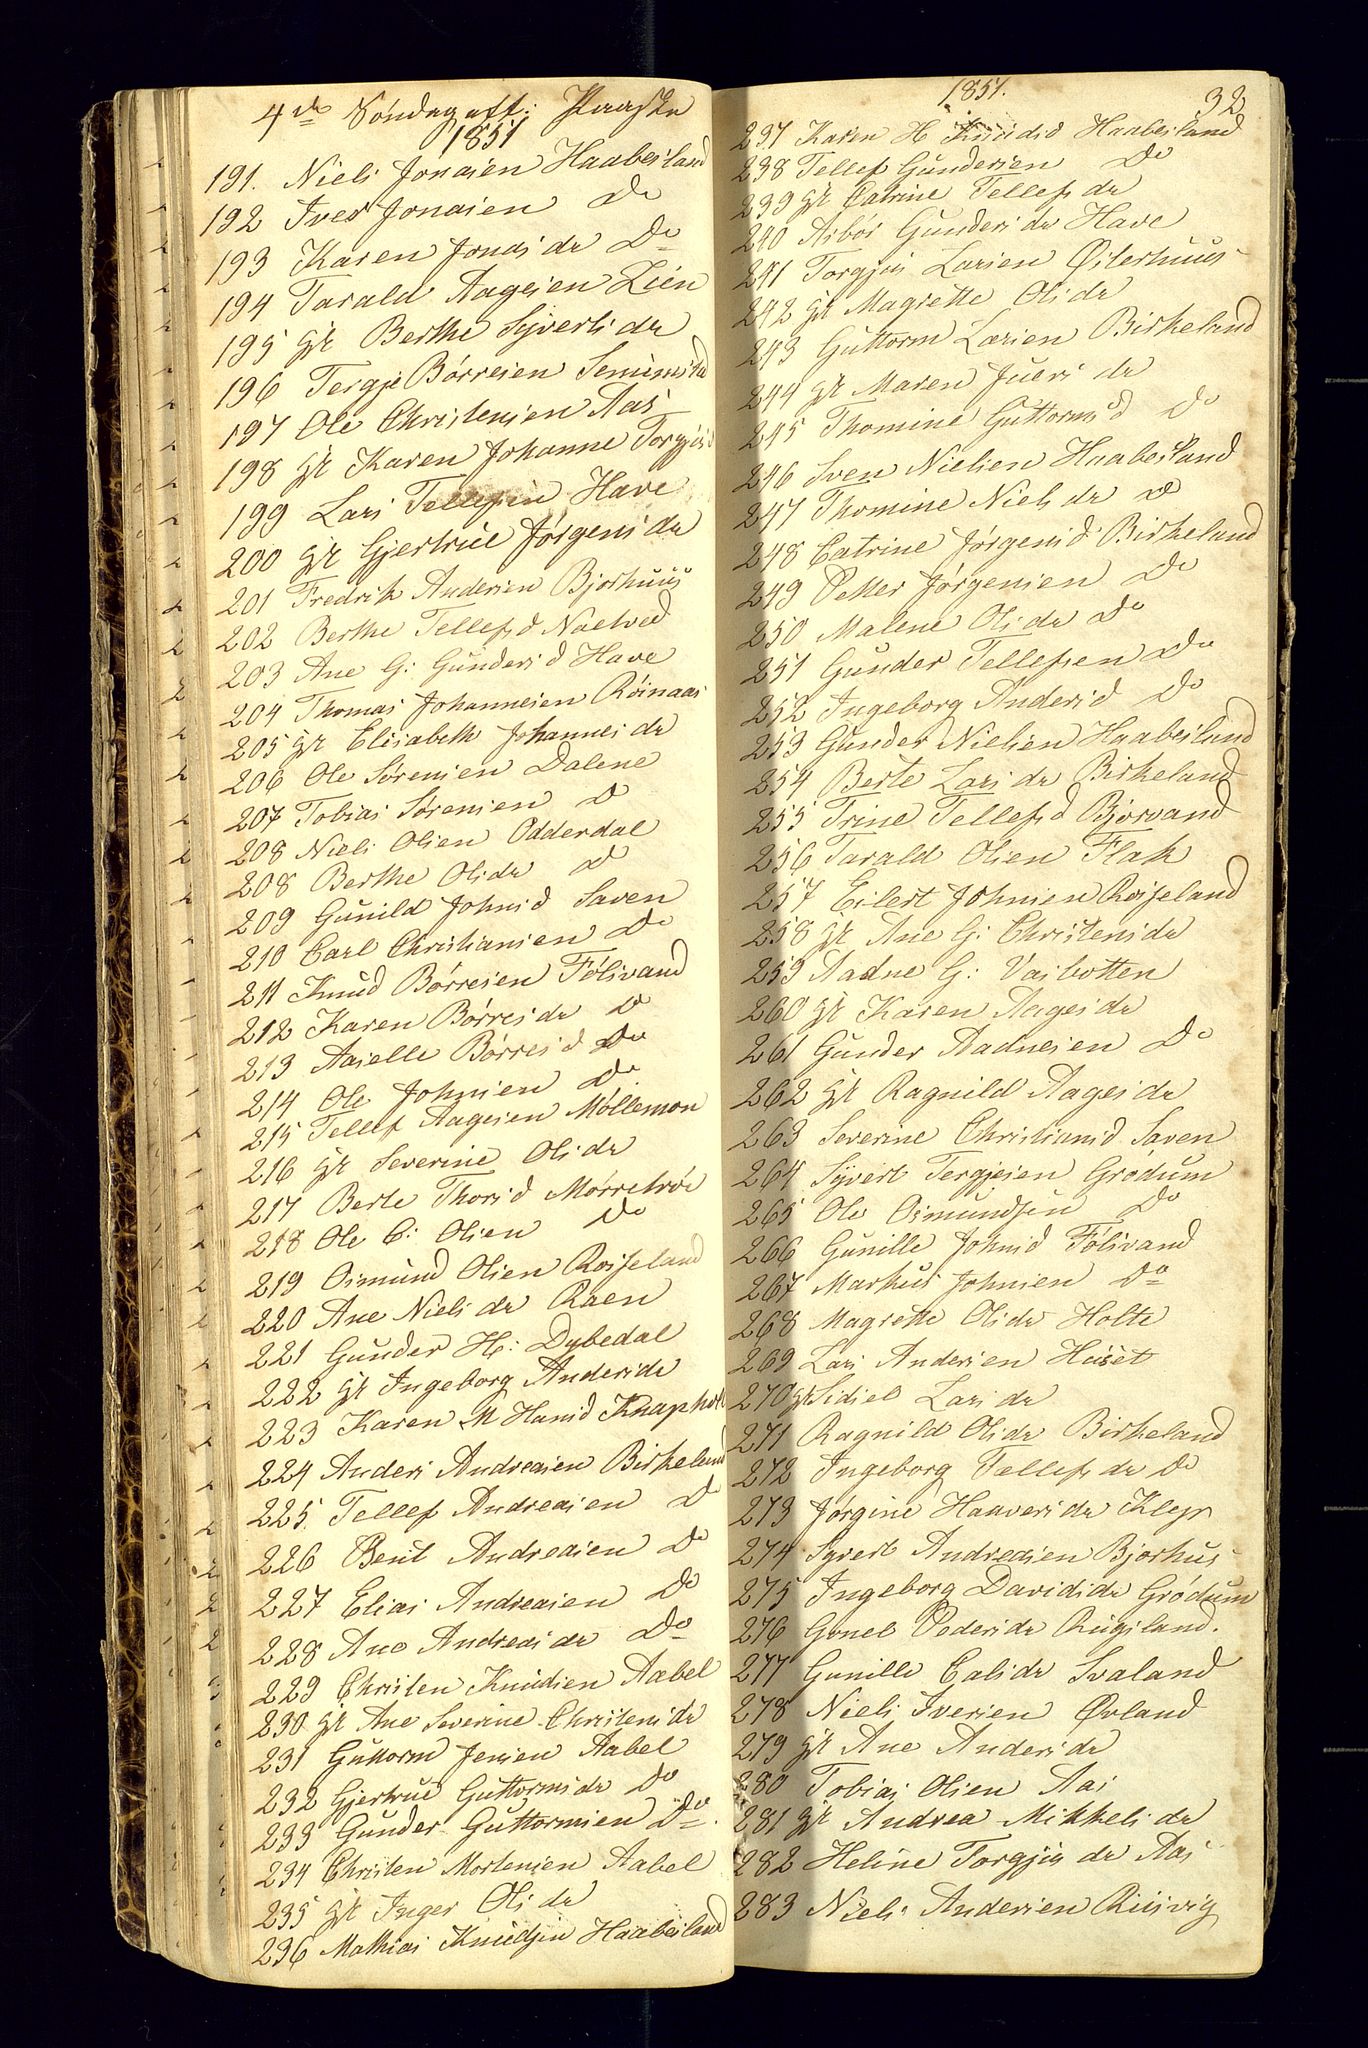 4de Søndag eft: Paaske
1851
191. Niels Jonasen Haabesland
192 Iver Jonasen Do
193 Karen Jonasdr Do
194 Tarald Aagesen Lien
195 gk Berthe Syvertsdr
196 Tergje Børresen
197 Ole Christensen Aas
198 gk Karen Johanne Torgjusd
199 Lars Tellefsen Have
200 gk Gjertrue Jørgensdr
201 Fredrik Andersen Bjorhuus
202 Berthe Tellefsd Noelved
203 Ane G: Gundersd Have
204 Thomas Johannesen Röinaas
205 gk Elisabeth Johannesdr
206 Ole Sørensen Dalene
207 Tobias Sørensen Do
208 Niels Olsen Odderdal
208 Berthe Olsdr Do
209 Gunild Johnsd Saven
210 Carl Christiansen Do
211 Knud Børresen Fölsvand
212 Karen Børresdr Do
213 Aaselle Børresd Do
214 Ole Johnsen Do
215 Tellef Aagesen Møllemon
216 gk Severine Olsdr
217 Berte Thorsd Mørretrøe
218 Ole C: Olsen Do
219 Osmund Olsen Rosseland
220 Ane Nielsdr Raen
221 Gunder H: Dybedal
222 gk Ingeborg Andersdr
223 Karen M Hansd Knapholt
224 Anders Andreasen Birkeland
225. Tellef Andreasen Do
226 Bent Andreasen Do
227 Elias Andreasen Do
228 Ane Andreasdr Do
229 Christen Knudsen Aabel
230 gk Ane Severine Christensdr
231 Guttorm Jensen Aabel
232 Gjertrue Guttormsdr Do
233 Gunder Guttormsen Do.
234 Christen Mortensen Aabel
235 gk Inger Olsdr
236 Mathias Knudsen Haabesland
1851. 32
237 Karen H Knudsd Haabesland
238 Tellef Gundersen Do
239 gk Catrine Tellefsdr
240 Asbør Gundersdr Have
241 Torgjus Larsen Østerhuus
242 gk Magrette Olsdr
243 Guttorm Larsen Birkeland
244 gk Maren Juersdr
245 Thomine Guttormsd Do
246 Sven Nielsen Haabesland
247 Thomine Nielsdr Do
248 Catrine Jørgensd Birkeland
249 Petter Jørgensen Do
250 Malene Olsdr Do
251 Gunder Tellefsen Do
252 Ingeborg Andersd Do
253 Gunder Nielsen Haabesland
254 Berte Larsdr Birkeland
255 Trine Tellefsd Bjorvand
256 Tarald Olsen Flak
257 Eilert Johnsen Rosseland
258 gk Ane G: Christensdr
259 Aadne G: Vasbotten
260 gk Karen Aagesdr
261 Gunder Aadnesen Do
262 gk Ragnild Aagesdr
263 Severine Christiansd Saven
264 Syvert Tergjesen Grödum
265 Ole Osmundsen Do
266 Gunille Johnsd Fölsvand
267 Markus Johnsen Do
268 Magrette Olsdr Holte
269 Lars Andersen Huset
270 gk Sidsel Larsdr
271 Ragnild Olsdr Birkeland
272 Ingeborg Tellefsdr Do
273 Jørgine Haaversdr Kleps
274 Syvert Andreasen Bjorhus
275 Ingeborg Davidsdr Grödum
276 Gonel Pedersdr Rugsland.
277 Gunille Calsdr Svaland
278 Niels Iversen Øvland
279 gk Ane Andersdr
280 Tobias Olsen Aas
281 gk Andrea Mikkelsdr
282 Heline Torgjusdr Aas
283 Niels Andersen Riisvig